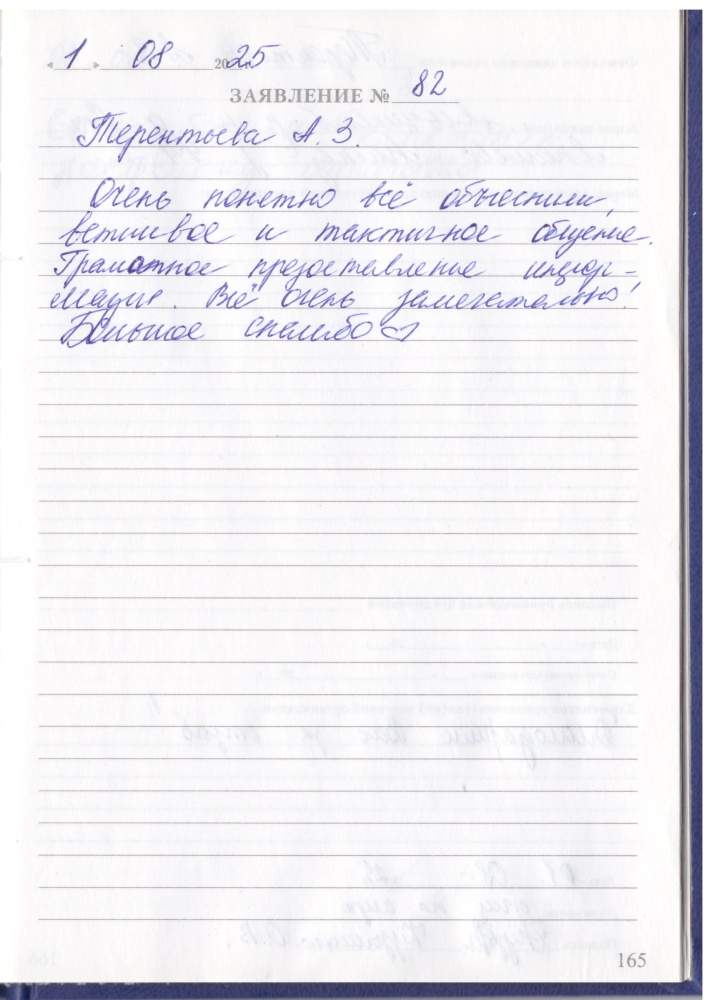 « 1 » 08 2025
ЗАЯВЛЕНИЕ № 82
Терентьева А. З.
Очень понетно всё объеснили,
ветливое и тактичное общение.
Грамотное предоставление инфор-
мации. Всё очень замечательно!
Большое спасибо ♡
165